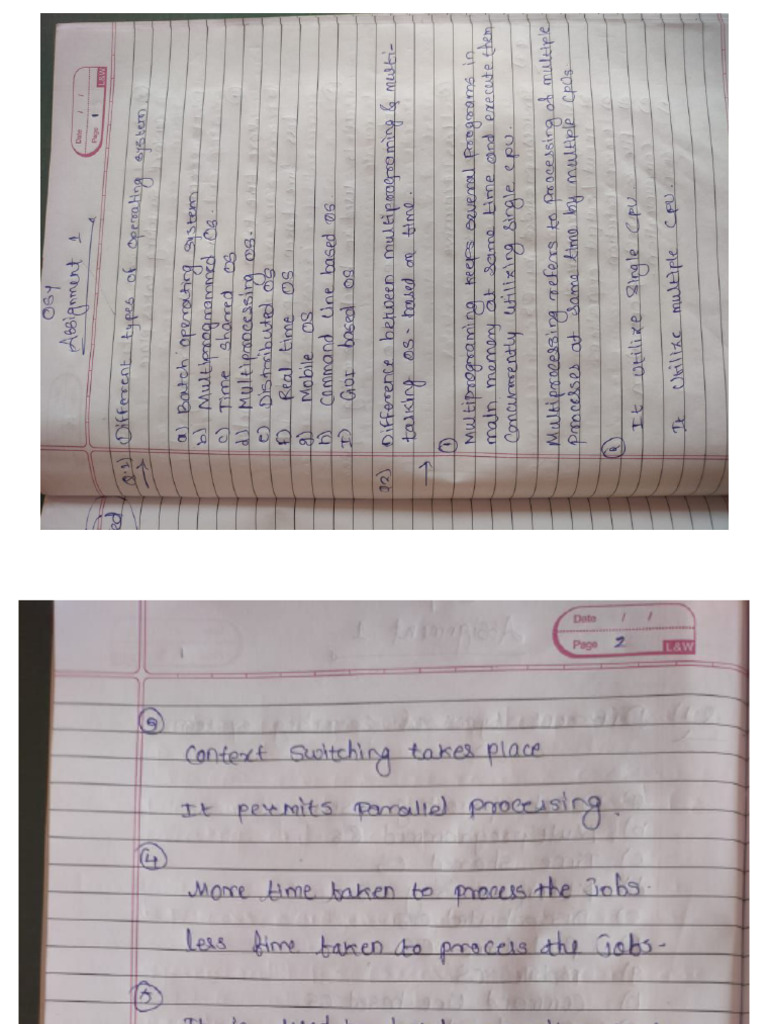 Date / /
Page 1
L&W
OSY
Assignment 1
Q.1) Different types of operating system
→
a) Batch operating system
b) Multiprogrammed OS.
c) Time shared OS
d) Multiprocessing OS.
e) Distributed OS
f) Real time OS
g) Mobile OS
h) Command line based OS
I) GUI based OS
Q2) Difference between multiprograming & multi-
tasking OS - based on time.
→ ①
Multiprograming keeps several programs in
main memory at same time and execute them
concurrently utilizing single CPU.
Multiprocessing refers to processing of multiple
processes at same time by multiple CPUs
②
It utilize single CPU
It utilize multiple CPU.
Date / /
Page 2
L&W
③
Context switching takes place
It permits parallel processing.
④
More time taken to process the Jobs.
less time taken to process the Jobs-
⑤
It is